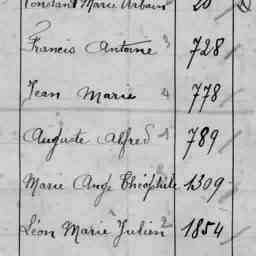 Constant Marie Urbain 20
Francis Antoine 3 728
Jean Marie 4 778
Auguste Alfred 1 789
Marie Ange Théophile 1309
Léon Marie Julien 2 1854